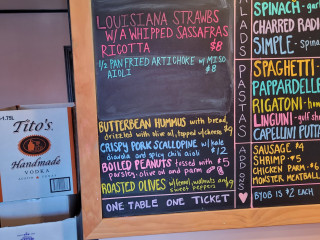 LOUISIANA STRAWBS
W/A WHIPPED SASSAFRAS
RICOTTA $8
1/2 PAN FRIED ARTICHOKE W/ MISO
AIOLI $8
BUTTERBEAN HUMMUS with bread,
drizzled with olive oil, topped w/cheese $9
CRISPY PORK SCALLOPINE w/ kale
and spicy chili aioli $12
BOILED PEANUTS tossed with $5
parsley, olive oil and parm
ROASTED OLIVES w/fennel, walnuts and
sweet peppers
ONE TABLE ONE TICKET
LADS
SPINACH - gar
CHARRED RADI
SIMPLE - spin
PASTAS
SPAGHETTI -
PAPPARDELLE
RIGATONI -
LINGUINI - gulf s
CAPELLINI PUTTA
ADDS
SAUSAGE $4
SHRIMP - $5
CHICKEN PARM - $6
MONSTER MEATBALL
BYOB IS $2 EACH
1.75L
Tito's
Handmade
VODKA